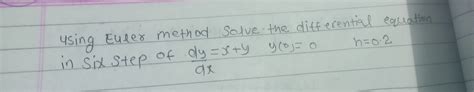 using Euler method solve the differential equation
in six step of dy/dx = x+y y(0)=0 h=0.2